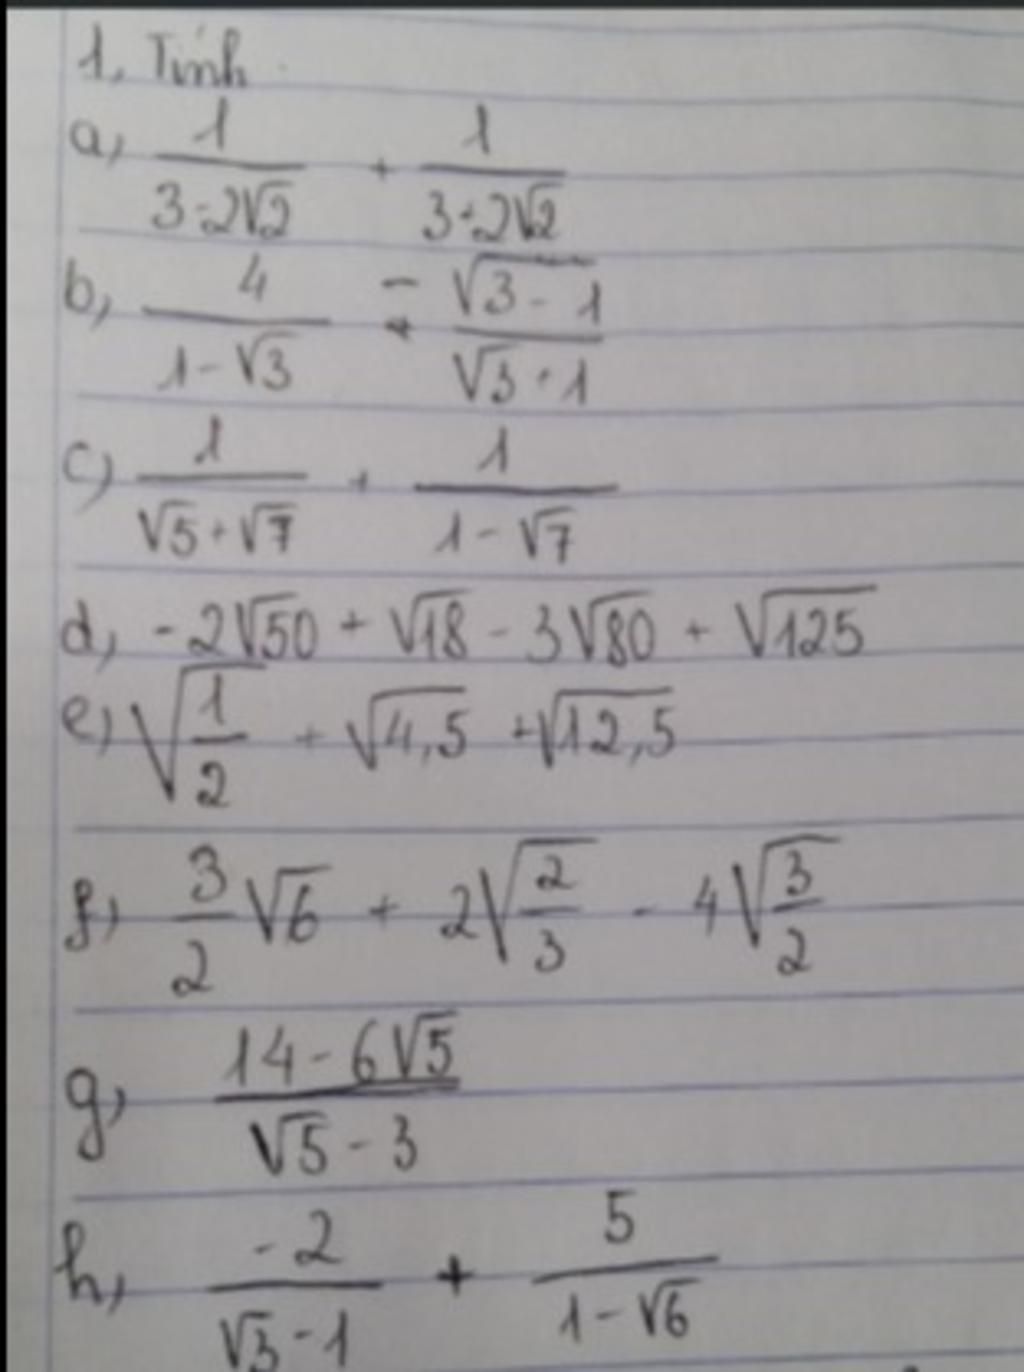 1, Tính
a, \frac{1}{3-2√2} + \frac{1}{3+2√2}
b, \frac{4}{1-√3} \frac{√3-1}{√3+1}
c) \frac{1}{√5+√7} + \frac{1}{1-√7}
d, -2√50 + √18 - 3√80 + √125
e) √\frac{1}{2} + √4,5 + √12,5
f) \frac{3}{2}√6 + 2√\frac{2}{3} - 4√\frac{3}{2}
g, \frac{14-6√5}{√5-3}
h, \frac{-2}{√3-1} + \frac{5}{1-√6}